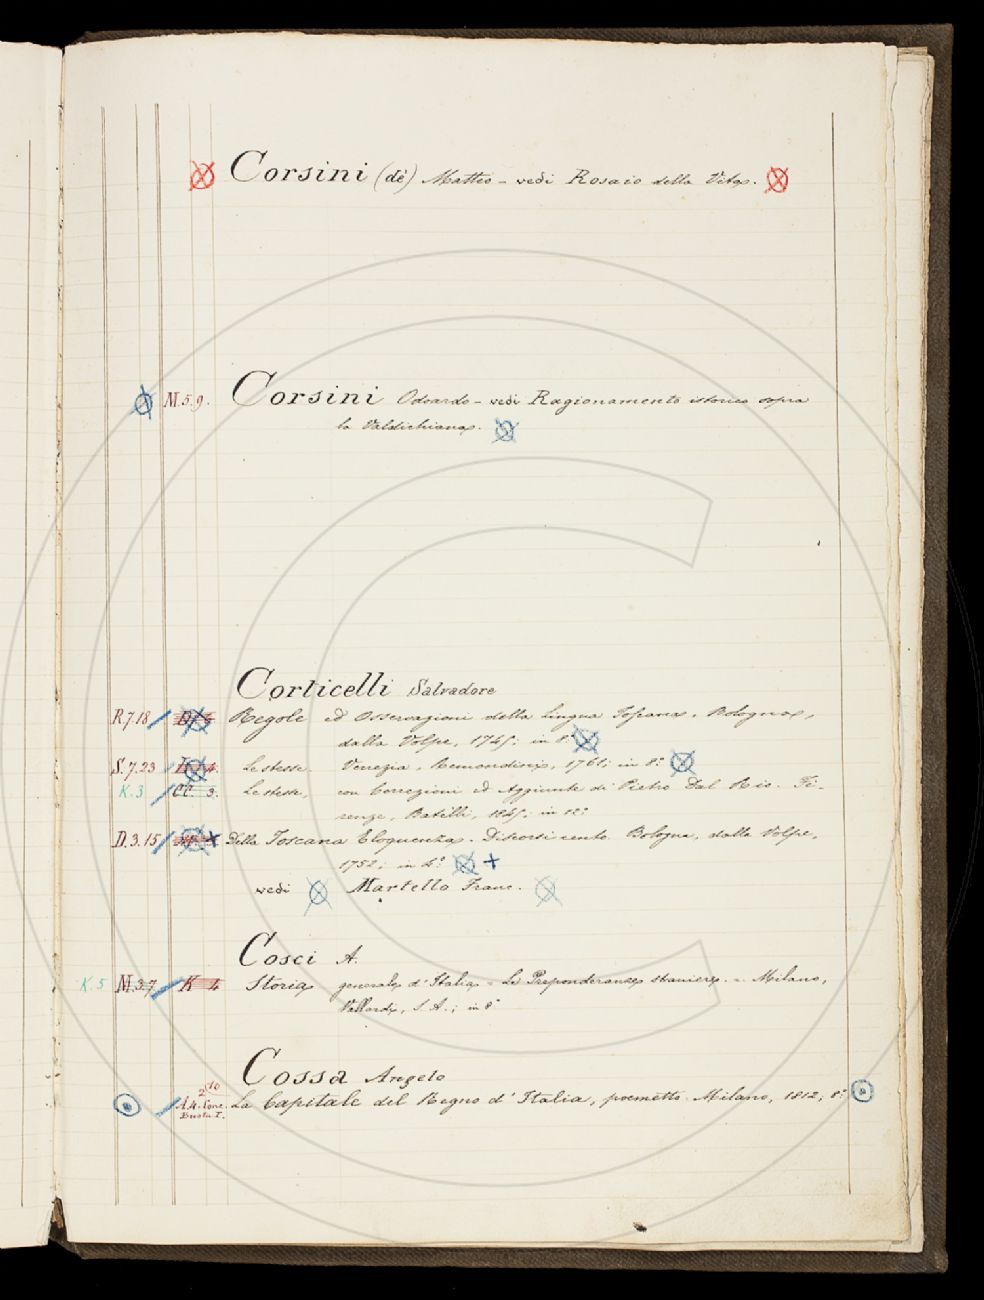 Corsini (de') Matteo – vedi Rosaio della Vita.
M.5.9. Corsini Odoardo – vedi Ragionamento istorico sopra
la Valdichiana.
Corticelli Salvadore
R.7.18 Regole ed Osservazioni della Lingua Toscana. Bologna,
dalla Volpe, 1745; in 8°
S.7.23 Le stesse. Venezia, Remondini, 1761; in 8°
K.3 CC. 3. Le stesse, con Correzioni ed Aggiunte di Pietro Dal Rio. Fi-
renze, Batelli, 1845; in 12°
D.3.15 Della Toscana Eloquenza. Discorsi cento. Bologna, dalla Volpe,
1752; in 4° +
vedi Martello Franc.
Cosci A.
K.5 M.3.7 K 4 Storia generale d'Italia – Le Preponderanze straniere. – Milano,
Vallardi, S. A.; in 8°
Cossa Angelo
2 10
A.4. Cons. La Capitale del Regno d'Italia, poemetto. Milano, 1812; 8°
Busta I.